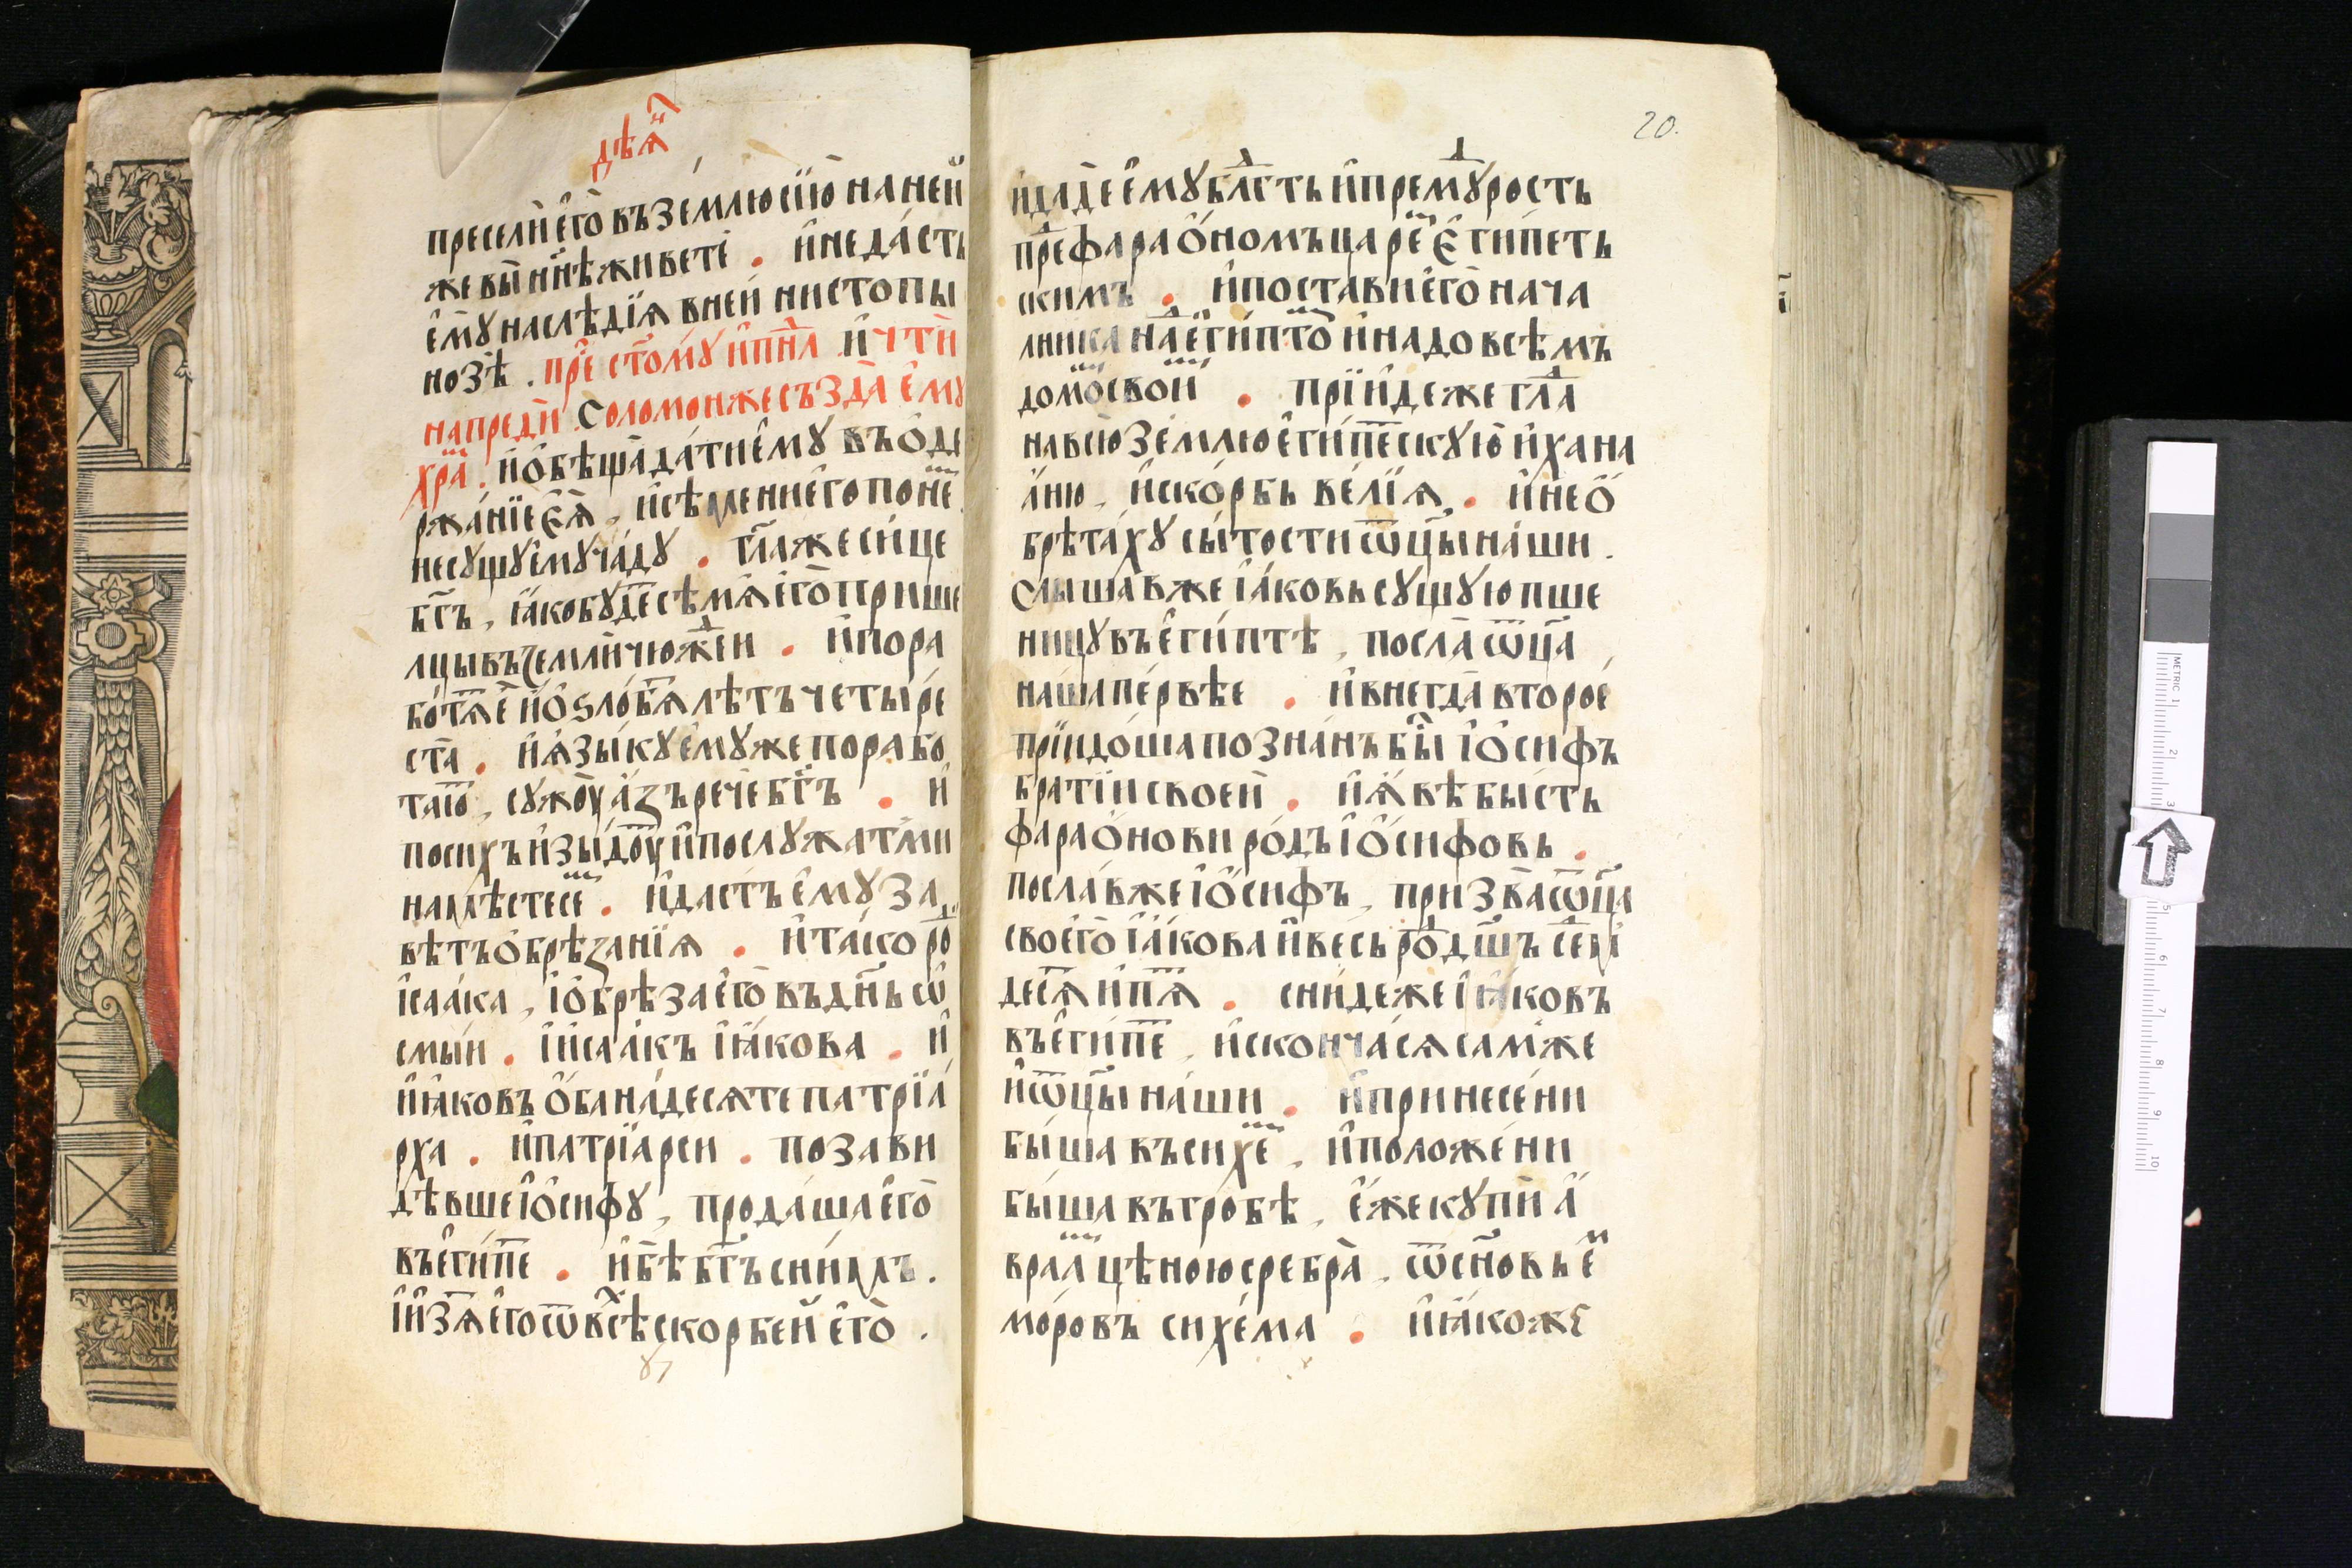 дѣѧⷩ҇
пресели̏ є҆го̀ въ зе́млю сїю̀ на ней
же вы̀ нн҃ѣ живетѐ . и҆ не да́сть
є҆мꙋ̀ наслѣ́дїѧ в ней ни стопы̀
нозѣ̀ . прⷣе ст҃о́мꙋ и҆ пⷭ҇нал и҆ чт҃и
напреди̏ . Соломон же създа̀ є҆мꙋ
хра́ⷨ . и҆ ѻ҆бѣща̀ да́ти є҆мꙋ въ ѻ҆де
ржа́нїе є҆ѧ̀ , и҆ сѣмени є҆го по неⷨ
не сꙋщꙋ є҆мꙋ ча́дꙋ . гл҃а же си́це
бг҃ъ , ꙗ҆ко бꙋдеⷮ сѣмѧ̀ є҆го̀ прише
лцы въ земли̏ чюжⷣеи . и҆ пора
ботѧⷮ є҆̀ и҆ ѻ҆ѕло́бѧⷮ лѣтъ четы́ре
ста . и҆ ѧ҆зы́кꙋ є҆мꙋже порабо
таюⷮ , сꙋжоу̀ а́зъ рече бг҃ъ . и҆
по сихъ и҆зы́доуⷮ и҆ послꙋжат ми
на мѣстѣ сеⷨ . и҆ дастъ є҆мꙋ за
вѣтъ ѻ҆брѣ́занїѧ . и҆ тако роⷣ
і҆саа́ка , і҆ ѻ҆брѣза є҆го̀ въ дн҃ь ѡ҆
смы́и . і҆ и҆саа́къ і҆ꙗ́кова . и҆
и҆ꙗ́ковъ ѻ҆бана́десѧте патрїа́
рха . и҆ патрїа́рси . позави
дѣвше і҆ѻ́сифꙋ , прода́ша є҆го̀
въ є҆ги́пеⷮ . и҆ бѣ̀ бг҃ъ с ни́мъ .
і҆ и҆зѧ́ⷮ є҆го ѿ всѣⷯ скорбей є҆го̀ .
20.
и҆ дадѐ є҆мꙋ блⷣгть и҆ премⷣꙋрость
преⷣ фараѻ́номъ цареⷨ Є҆ги́петь
скимъ . и҆ поста́ви є҆го̀ нача
лника наⷣ є҆ги́птоⷨ и҆ надо всѣмъ
домоⷨ свои́ⷨ . прїи́де же глаⷣ
на всю зе́млю є҆ги́пеⷮскꙋю и҆ хана
а́ню , и҆ ско́рбь ве́лїѧ . и҆ не ѻ҆
брѣта́хꙋ сы́тости ѿц҃ы на́ши .
Слыша́в же і҆ꙗ́ковь сꙋщꙋю пше
ницꙋ въ є҆ги́птѣ , посла̀ ѿц҃а
на́ша пе́рвѣе . и҆ внегда̀ второе
прїидо́ша позна́нъ бы́ⷭ і҆ѻ́сифъ
братїи свое́й . и҆ ꙗ҆́вѣ бы́сть
фараѻ́нови ро́дъ і҆ѻ́сифовь .
посла́в же і҆ѻ́сифъ , призва̀ ѿц҃а
своего̀ і҆ꙗ́кова и҆ весь роⷣ дш҃ъ сеⷣм
десѧⷮ и҆ пѧⷮ . сни́де же і҆ꙗ́ковъ
въ є҆ги́пеⷮ , и҆ сконча́сѧ сам же
и҆ ѿц҃ы на́ши . и҆ принесе́ни
бы́ша въ сихе́ⷨ , и҆ положе́ни
бы́ша въ гро́бѣ , є҆́же кꙋпи̏ а҆
враа́ⷨ цѣною сребра̀ , ѿ сн҃овь є҆ⷨ
мо́ровъ сихе́ма . и҆ ꙗ҆́коже